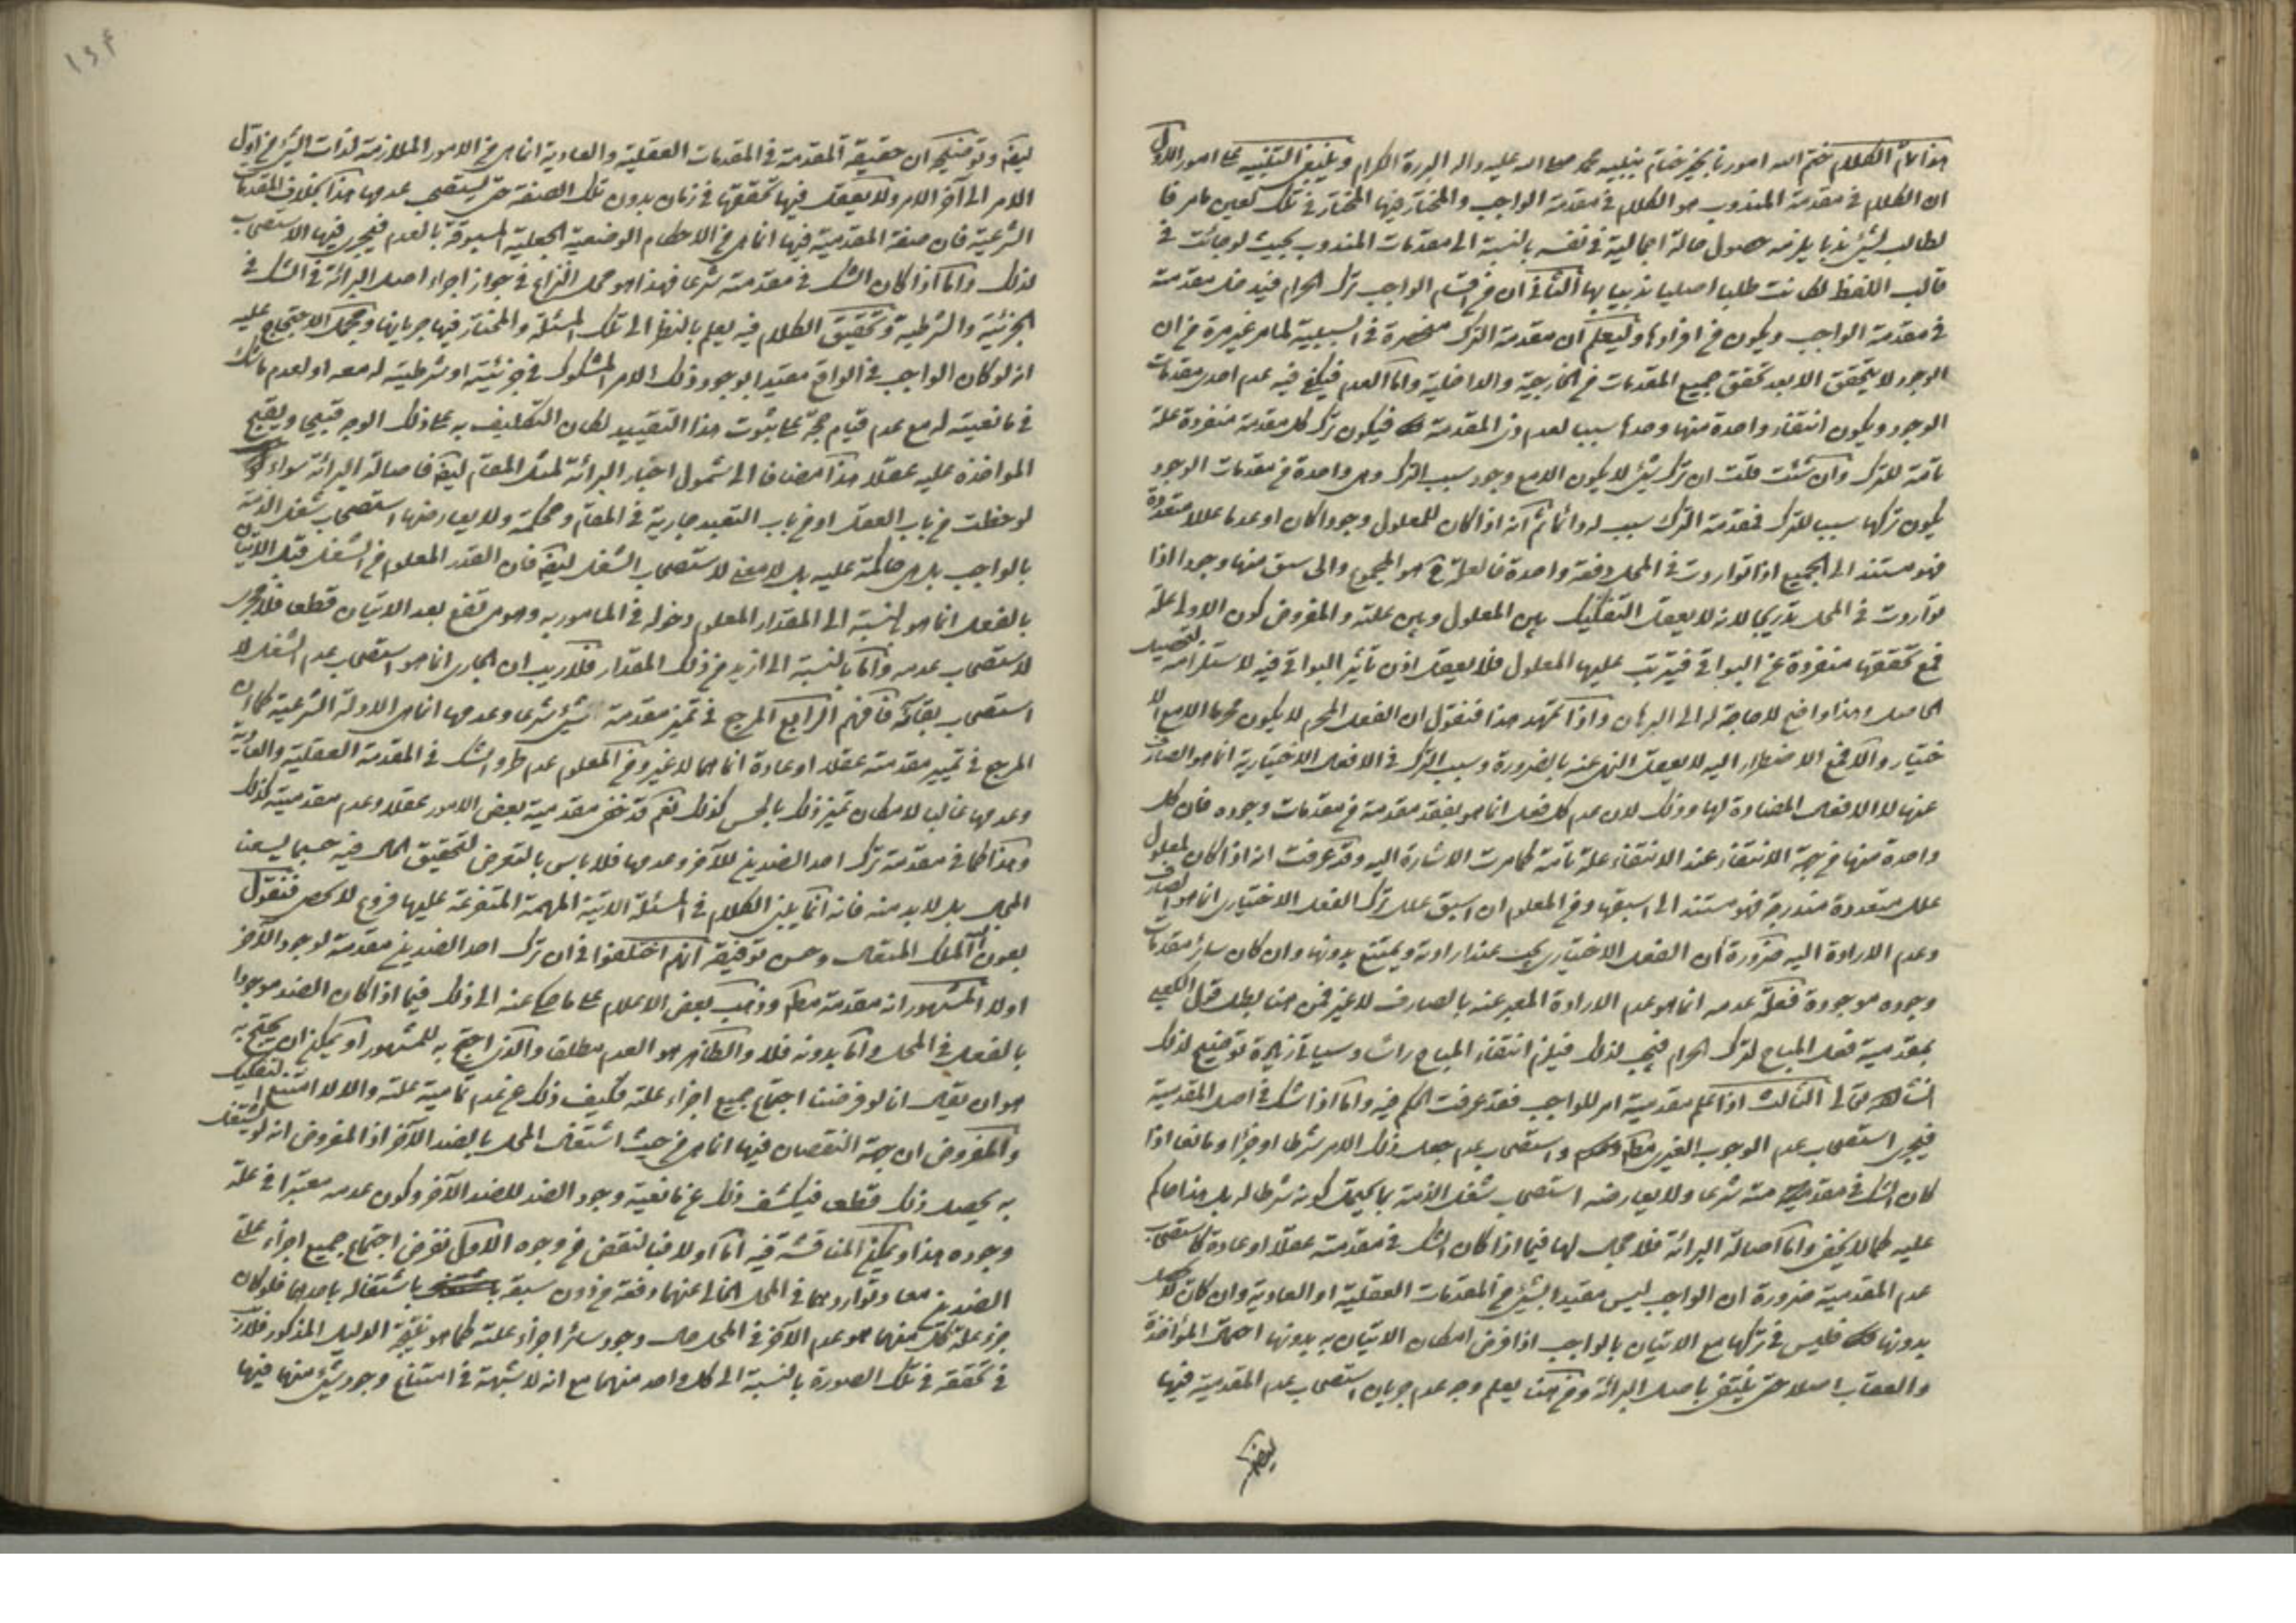 هذا تمام الكلام ختم الله امورنا بخير ختام بنبيه محمد صلى الله عليه واله البررة الكرام وينبغي التنبيه على امور الاول
ان الكلام في مقدمة المندوب هو الكلام في مقدمة الواجب والمختار فيها المختار في تلك لعين ما مر فان
لطالب لشيء ندبا يلزمه حصول حالة اجمالية في نفسه بالنسبة الى مقدمات المندوب بحيث لو جائت في
قالب اللفظ لكانت طلبا اصليا ندبيا بها الثاني ان من اقسام الواجب ترك الحرام فيدخل مقدمته
في مقدمة الواجب ويكون من افرادها وليعلم ان مقدمة الترك منحصرة في السببية لما مر غير مرة من ان
الوجود لا يتحقق الا بعد تحقق جميع المقدمات من الخارجية والداخلية واما العدم فيكفي فيه عدم احدى مقدمات
الوجود ويكون انتفاء واحدة منها وحدها سببا لعدم ذي المقدمة فيكون ترك كل مقدمة منفردة علة
تامة للترك وان شئت قلت ان ترك شيء لا يكون الا مع وجود سبب الترك وهي واحدة من مقدمات الوجود
يكون تركها سببا للترك فمقدمة الترك سبب له دائما ثم انه اذا كان للمعلول وجودا كان او عدما عللا متعددة
فهو مستند الى الجميع اذا تواردت في المحل دفعة واحدة فالعلة ح هو المجموع والى اسبق منها وجودا اذا
تواردت في المحل تدريجا لانه لا يعقل التفكيك بين المعلول وبين علته والمفروض كون الاولى علة
فمع تحققها منفردة عن البواقي فيترتب عليها المعلول فلا يعقل اذن تأثير البواقي فيه لاستلزامه لتحصيل
الحاصل وهذا واضح لا حاجة له الى البرهان واذا تمهد هذا فنقول ان الفعل المحرم لا يكون محرما الا مع الا
ختيار والا فمع الاضطرار اليه لا يعقل النهي عنه بالضرورة وسبب الترك في الافعال الاختيارية انما هو الصارف
عنها لا الافعال المضادة لها وذلك لان عدم كل فعل انما هو بفقد مقدمة من مقدمات وجوده فان كل
واحدة منها من جهة الانتفاء عند الانتفاء علة تامة كما مرت الاشارة اليه وقد عرفت انه اذا كان لمعلول
علل متعددة متدرجة فهو مستند الى اسبقها ومن المعلوم ان اسبق علل ترك الفعل الاختياري انما هو الصارف
وعدم الارادة اليه ضرورة ان الفعل الاختياري يجب عند ارادته ويمتنع بدونها وان كان سائر مقدمات
وجوده موجودة فعلة عدمه انما هو عدم الارادة المعبر عنه بالصارف لا غير فمن هنا بطل قول الكعبي
بمقدمية فعل المباح لترك الحرام فيجب لذلك فيلزم انتفاء المباح راسا وسياتي زيادة توضيح لذلك
انشاء الله تعالى الثالث اذا علم مقدمية امر للواجب فقد عرفت الحكم فيه واما اذا شك في اصل المقدمية
فيجري استصحاب عدم الوجوب الغيري واستصحاب عدم جعل ذلك الامر شرطا او جزءا ومانعا اذا
كان الشك في مقدميته شرعا ولا يعارضه استصحاب شغل الذمة بما يحتمل كونه شرطا له بل هذا حاكم
عليه كما لا يخفى واما اصالة البرائة فلا مجال لها فيما اذا كان الشك في مقدمته عقلا او عادة كاستصحاب
عدم المقدمية ضرورة ان الواجب ليس مقيدا بشيء من المقدمات العقلية او العادية وان كان لا يحصل
بدونها فليس في تركها مع الاتيان بالواجب اذا فرض امكان الاتيان به بدونها احتمال المؤاخذة
والعقاب اصلا حتى ينتفي باصل البرائة ومن هنا يعلم وجه عدم جريان استصحاب عدم المقدمية فيها
ايضا
ايضا وتوضيحه ان حقيقة المقدمة في المقدمات العقلية والعادية انما هي من الامور الملازمة لذات الشيء من اول
الامر الى آخر الامر ولا يعقل فيها تحققها في زمان بدون تلك الصفة حتى يستصحب عدمها هذا بخلاف المقدمات
الشرعية فان صفة المقدمية فيها انما هي من الاحكام الوضعية الجعلية المسبوقة بالعدم فيجري فيها الاستصحاب
لذلك واما اذا كان الشك في مقدمته شرعا فهذا هو محل النزاع في جواز اجراء اصل البرائة في الشك في
الجزئية والشرطية وتحقيق الكلام فيه يعلم بالنظر الى تلك المسئلة والمختار فيها جريانها ومجمل الاحتجاج عليه
انه لو كان الواجب في الواقع مقيدا بوجود ذلك الامر المشكوك في جزئيته او شرطيته له معه او لعدم ما شك
في مانعيته له مع عدم قيام حجة على ثبوت هذا التقييد لكان التكليف به على ذلك الوجه قبيحا ويقبح
المؤاخذة عليه عقلا هذا مضافا الى شمول اخبار البرائة لمثل المقام ايضا فاصالة البرائة سواء
لوحظت من باب العقل او من باب التعبد جارية في المقام ومحكمة ولا يعارضها استصحاب شغل الذمة
بالواجب بل هي حاكمة عليه بل لا معنى لاستصحاب الشغل ايضا فان القدر المعلوم من الشغل قبل الاتيان
بالفعل انما هو بالنسبة الى المقدار المعلوم دخوله في المامور به وهو مرتفع بعد الاتيان قطعا فلا مجرى
لاستصحاب عدمه واما بالنسبة الى ازيد من ذلك المقدار فلا ريب ان الجاري انما هو استصحاب عدم الشغل لا
استصحاب بقائه فافهم الرابع المرجع في تميز مقدمة شيء شرعا وعدمها انما هي الادلة الشرعية كما ان
المرجع في تمييز مقدمته عقلا او عادة انما هما لا غير ومن المعلوم عدم طرو الشك في المقدمة العقلية والعادية
وعدمها غالبا لامكان تميز ذلك بالحس كذلك نعم قد تخفى مقدمية بعض الامور عقلا وعدم مقدميته كذلك
وهذا كما في مقدمة ترك احد الضدين للآخر وعدمها فلا باس بالتعرض لتحقيق الحال فيه حسبما يسعنا
المجال بل لا بد منه فانه انما يبتني الكلام في المسئلة الآتية المهمة المتفرعة عليها فروع لا تحصى فنقول
بعون الملك المتعال وحسن توفيقه انهم اختلفوا في ان ترك احد الضدين مقدمة لوجود الآخر
اولا المشهور انه مقدمة مطلقا وذهب بعض الاعلام على ما حكي عنه الى ذلك فيما اذا كان الضد موجودا
بالفعل في المحل واما بدونه فلا والظاهر هو العدم مطلقا والذي احتج به للمشهور او يمكن ان يحتج به
هو ان يقال انا لو فرضنا اجتماع جميع اجزاء علته فكيف ذلك عن عدم تمامية علته والا لامتنع التفكيك
والمفروض ان جهة النقصان فيها انما هي من حيث اشتغال المحل بالضد الآخر اذ المفروض انه لو لم يشتغل
به يحصل ذلك قطعا فيكشف ذلك عن مانعية وجود الضد للضد الآخر وكون عدمه معتبرا في علة
وجوده هذا ويمكن المناقشة فيه اما اولا فبالنقض من وجوه الاول نفرض اجتماع جميع اجزاء علتي
الضدين معا وتواردهما في المحل الخالي عنهما دفعة من دون سبقه باشتغاله باحدهما فلو كان
جزء علة كل منهما هو عدم الآخر في المحل حال وجود سائر اجزاء علته كما هو نتيجة الدليل المذكور فلا ريب
في تحققه في تلك الصورة بالنسبة الى كل واحد منهما مع انه لا شبهة في امتناع وجود شيء منهما فيها